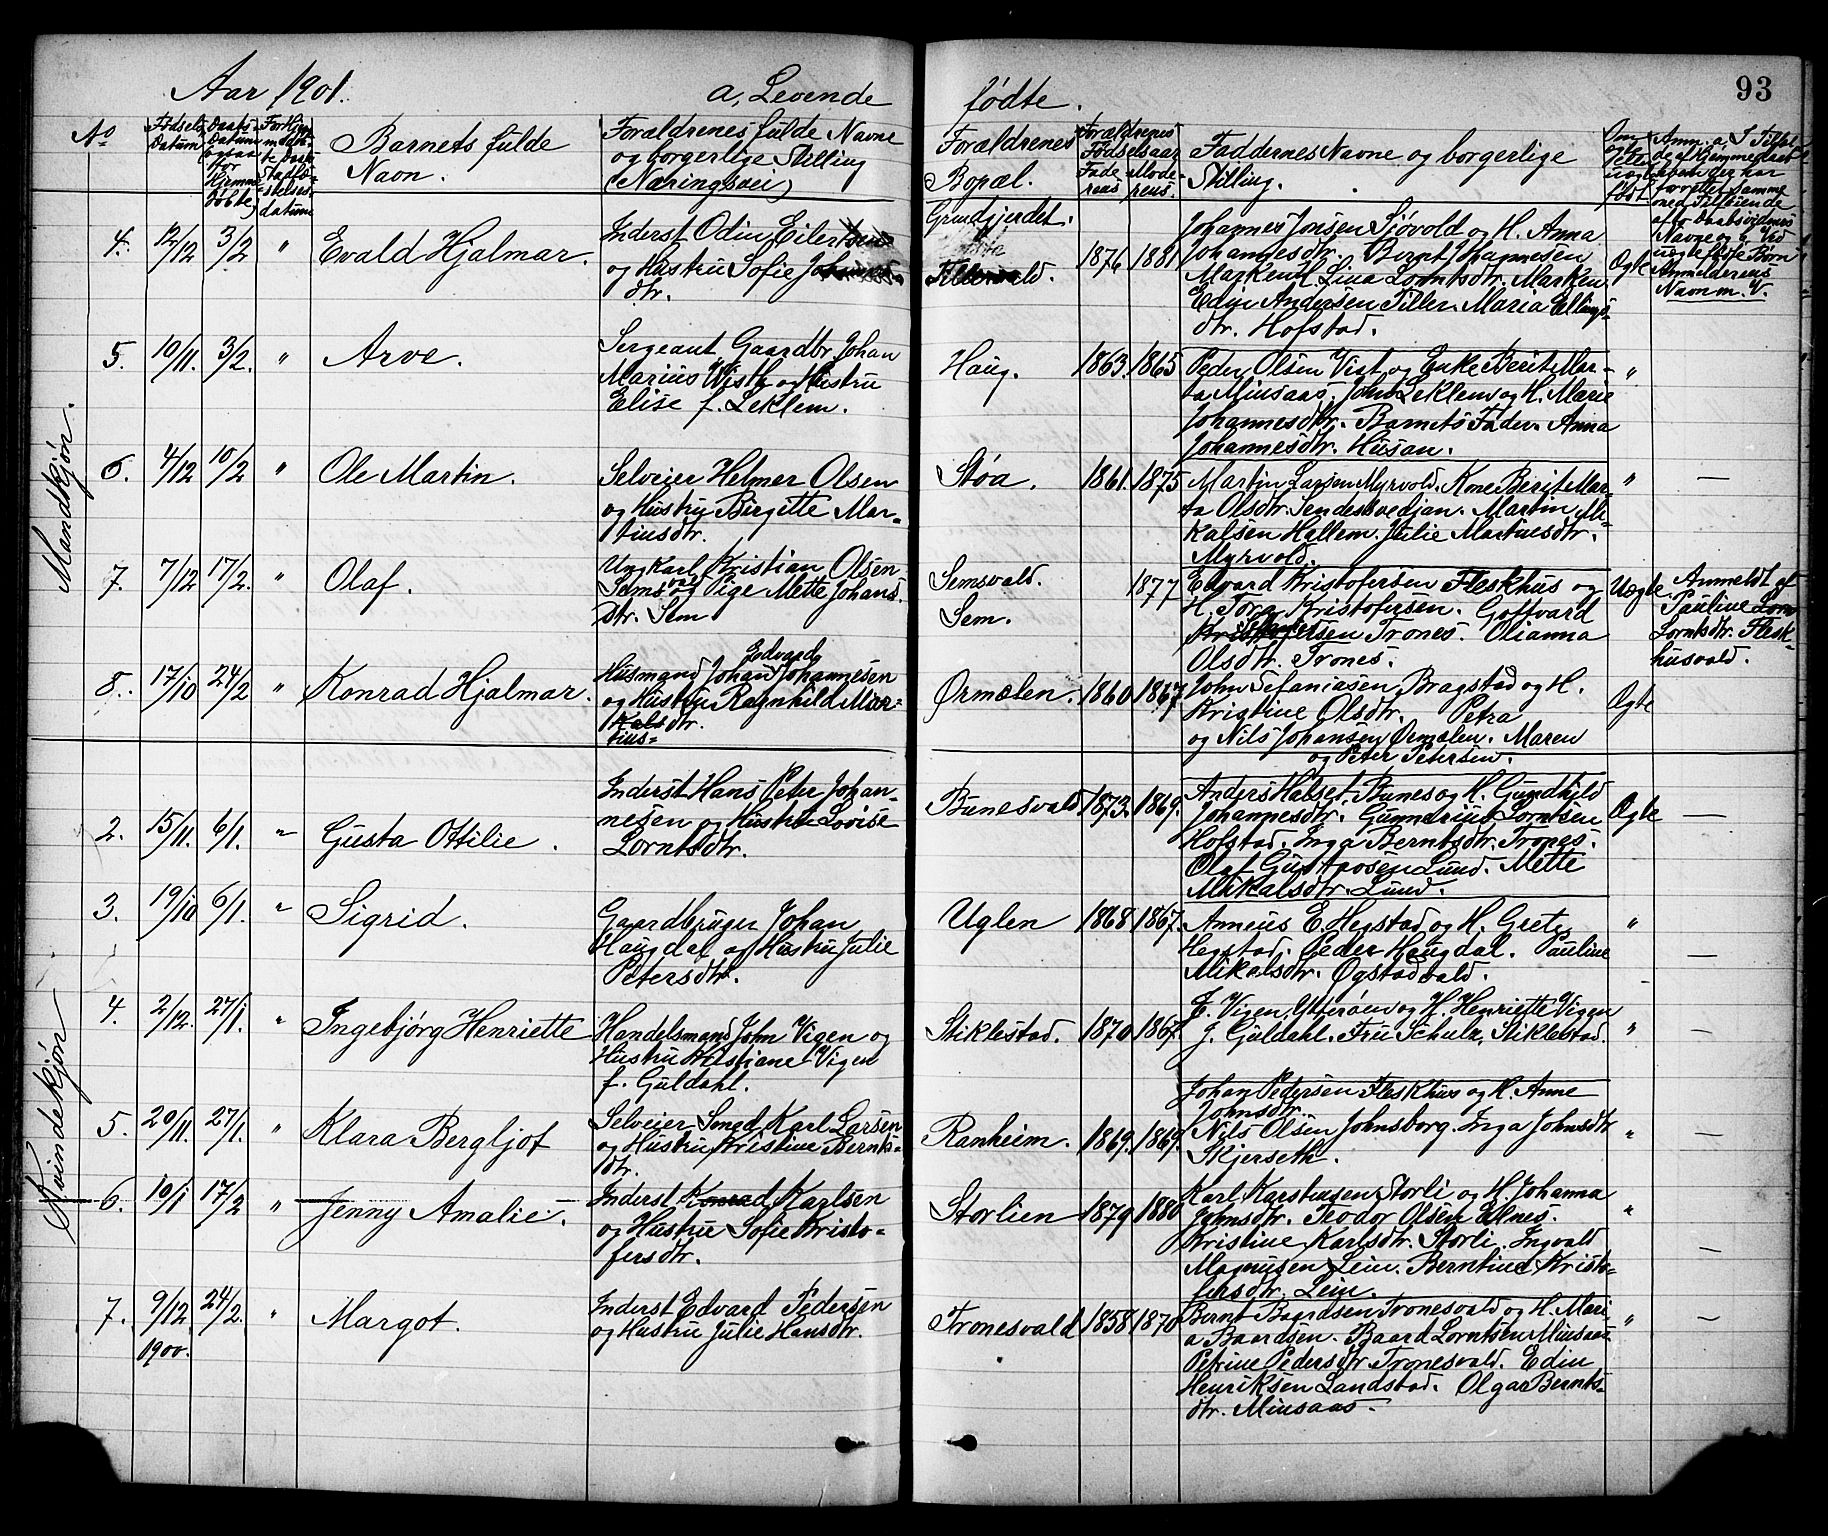 Aar 1901.
a, Levende
fødte.
93
No
Fødsels Datum
Daabs-Datum (ogsaa for Hjemmedøbte)
Barnets fulde Navn.
Forældrenes fulde Navne og borgerlige Stilling (Næringsvei)
Forældrenes Bopæl.
Forældrenes Fødselsaar
Faderens
Moderens.
Faddernes Navne og borgerlige Stilling.
Mandkjøn.
4. 12/12 3/2 " Evald Hjalmar.
Inderst Odin Eilertsen
og Hustru Sofie
dtr.
Grundgjerdet.
1876 1881
Johannes Jonsen Sjövold og H. Anna
Johannesdtr. Bernt Johannesen
Marken H. Lina Lorntsdtr. Marken
Edin Andersen Tiller. Maria Ellings-
dtr. Hofstad.
Ægte
5. 10/11. 3/2. " Arve.
Sergeant, Gaardbr. Johan
Marius Wisth og Hustru
Elise f. Leklem.
Haug. 1863. 1865
Peder Olsen Vist og Enke Berit Mar-
ta Minsaas. John Leklem og H. Marie
Johannesdtr. Barnets Fader. Anna
Johannesdtr. Husan.
"
6. 4/12 10/2 " Ole Martin.
Selveier Helmer Olsen
og Hustru Birgitte Mar-
tinsdtr.
Støa. 1861. 1875
Martin Larsen Myrvold. Kone Berit Mar-
ta Olsdtr. Sendesvedjan. Martin Mi-
kalsen Hallem. Julie Martinsdtr.
Myrvold.
" —
7. 7/12 17/2. " Olaf.
Ungkarl Kristian Olsen
Semsvald og Pige Mette Johans
Dtr. Sem
Semsvald.
Sem.
1877
Edvard Kristofersen Fleskhus og
H. Tora Kristofersen. Gottvard
Kristofersen Trones. Olianna
Olsdtr. Trones.
Uægte
Anmeldt af
Pauline
Lorntsdtr. Flesk-
husvald.
8. 17/10 24/2 " Konrad Hjalmar.
Edvard
Husmand Johan Johannesen
og Hustru Ragnhild Mar-
tins-
dtr.
Ørmælen. 1860 1867
John Sefaniasen Bragstad og H.
Kristine Olsdtr. Petra
og Nils Johansen Ørmælen. Maren
og Peter Petersen.
Ægte
Kvindekjøn
2. 15/11. 6/1. " Gusta Ottilie.
Inderst Hans Peter Johan-
nesen og Hustru Lovise
Lorntsdtr.
Bunesvald 1873. 1869.
Anders Halset, Bunes og H. Gundhild
Johannesdtr. Gunnerius Lorntsen
Hofstad. Inga Berntsdtr. Trones.
Olaf Gustavsen Lund. Mette
Mikalsdtr. Lund.
Ægte —
3. 19/10 6/1. " Sigrid.
Gaardbruger Johan
Haugdal og Hustru Julie
Petersdtr.
Uglen 1868 1867.
Anneus E. Hegstad og H. Grete
Hegstad. Peder Haugdal. Pauline
Mikalsdtr. Øgstadvald.
" —
4. 2/12. 27/1. " Ingebjørg Henriette
Handelsmand John Vigen og
Hustru Kristiane Vigen
f. Guldahl.
Stiklestad. 1870 1867.
E. Vigen, Ytterøen og H. Henriette Vigen
J. Guldahl. Fru Schulz, Stiklestad.
" —
5. 20/11. 27/1. " Klara Bergljot
Selveier Smed Karl Larsen
og Hustru Kristine Bernts-
dtr.
Ranheim. 1869. 1869.
Johan Pedersen Fleskhus og H. Anne
Johnsdtr.
Nils Olsen Johnsborg. Inga Johnsdtr
Skjerseth.
" —
6. 10/1 17/2 " Jenny Amalie.
Inderst Konrad Karlsen
og Hustru Sofie Kristo-
fersdtr.
Storlien 1879 1880
Karl Karstensen Storli og H. Johanna
Johnsdtr. Teodor Olsen Eklnes.
Kristine Karlsdtr. Storli. Ingvald
Magnusen Lein. Berntine Kristo-
fersdtr. Lein.
" —
7. 9/12 24/2. " Margot.
1900.
Inderst Edvard Pedersen
og Hustru Julie Hansdtr.
Tronesvald 1858 1870
Bernt Baardsen Tronesvald og H. Mari
a Baardsen. Baard Lorntsen Minsaas
Petrine Pedersdtr. Tronesvald. Edin
Henriksen Landstad. Olga Bernts-
dtr. Minsaas.
" —